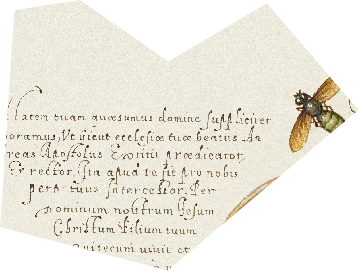 tatem tuam quæsumus domine suppliciter
oramus, Vt sicut ecclesiæ tuæ beatus An
reas Apostolus Extitit prædicator,
Et rector, sia apud te sit pro nobis
perp tuus Intercessor. Per
Dominum nostrum Jesum
Christum Filium tuum
qui tecum vivit et